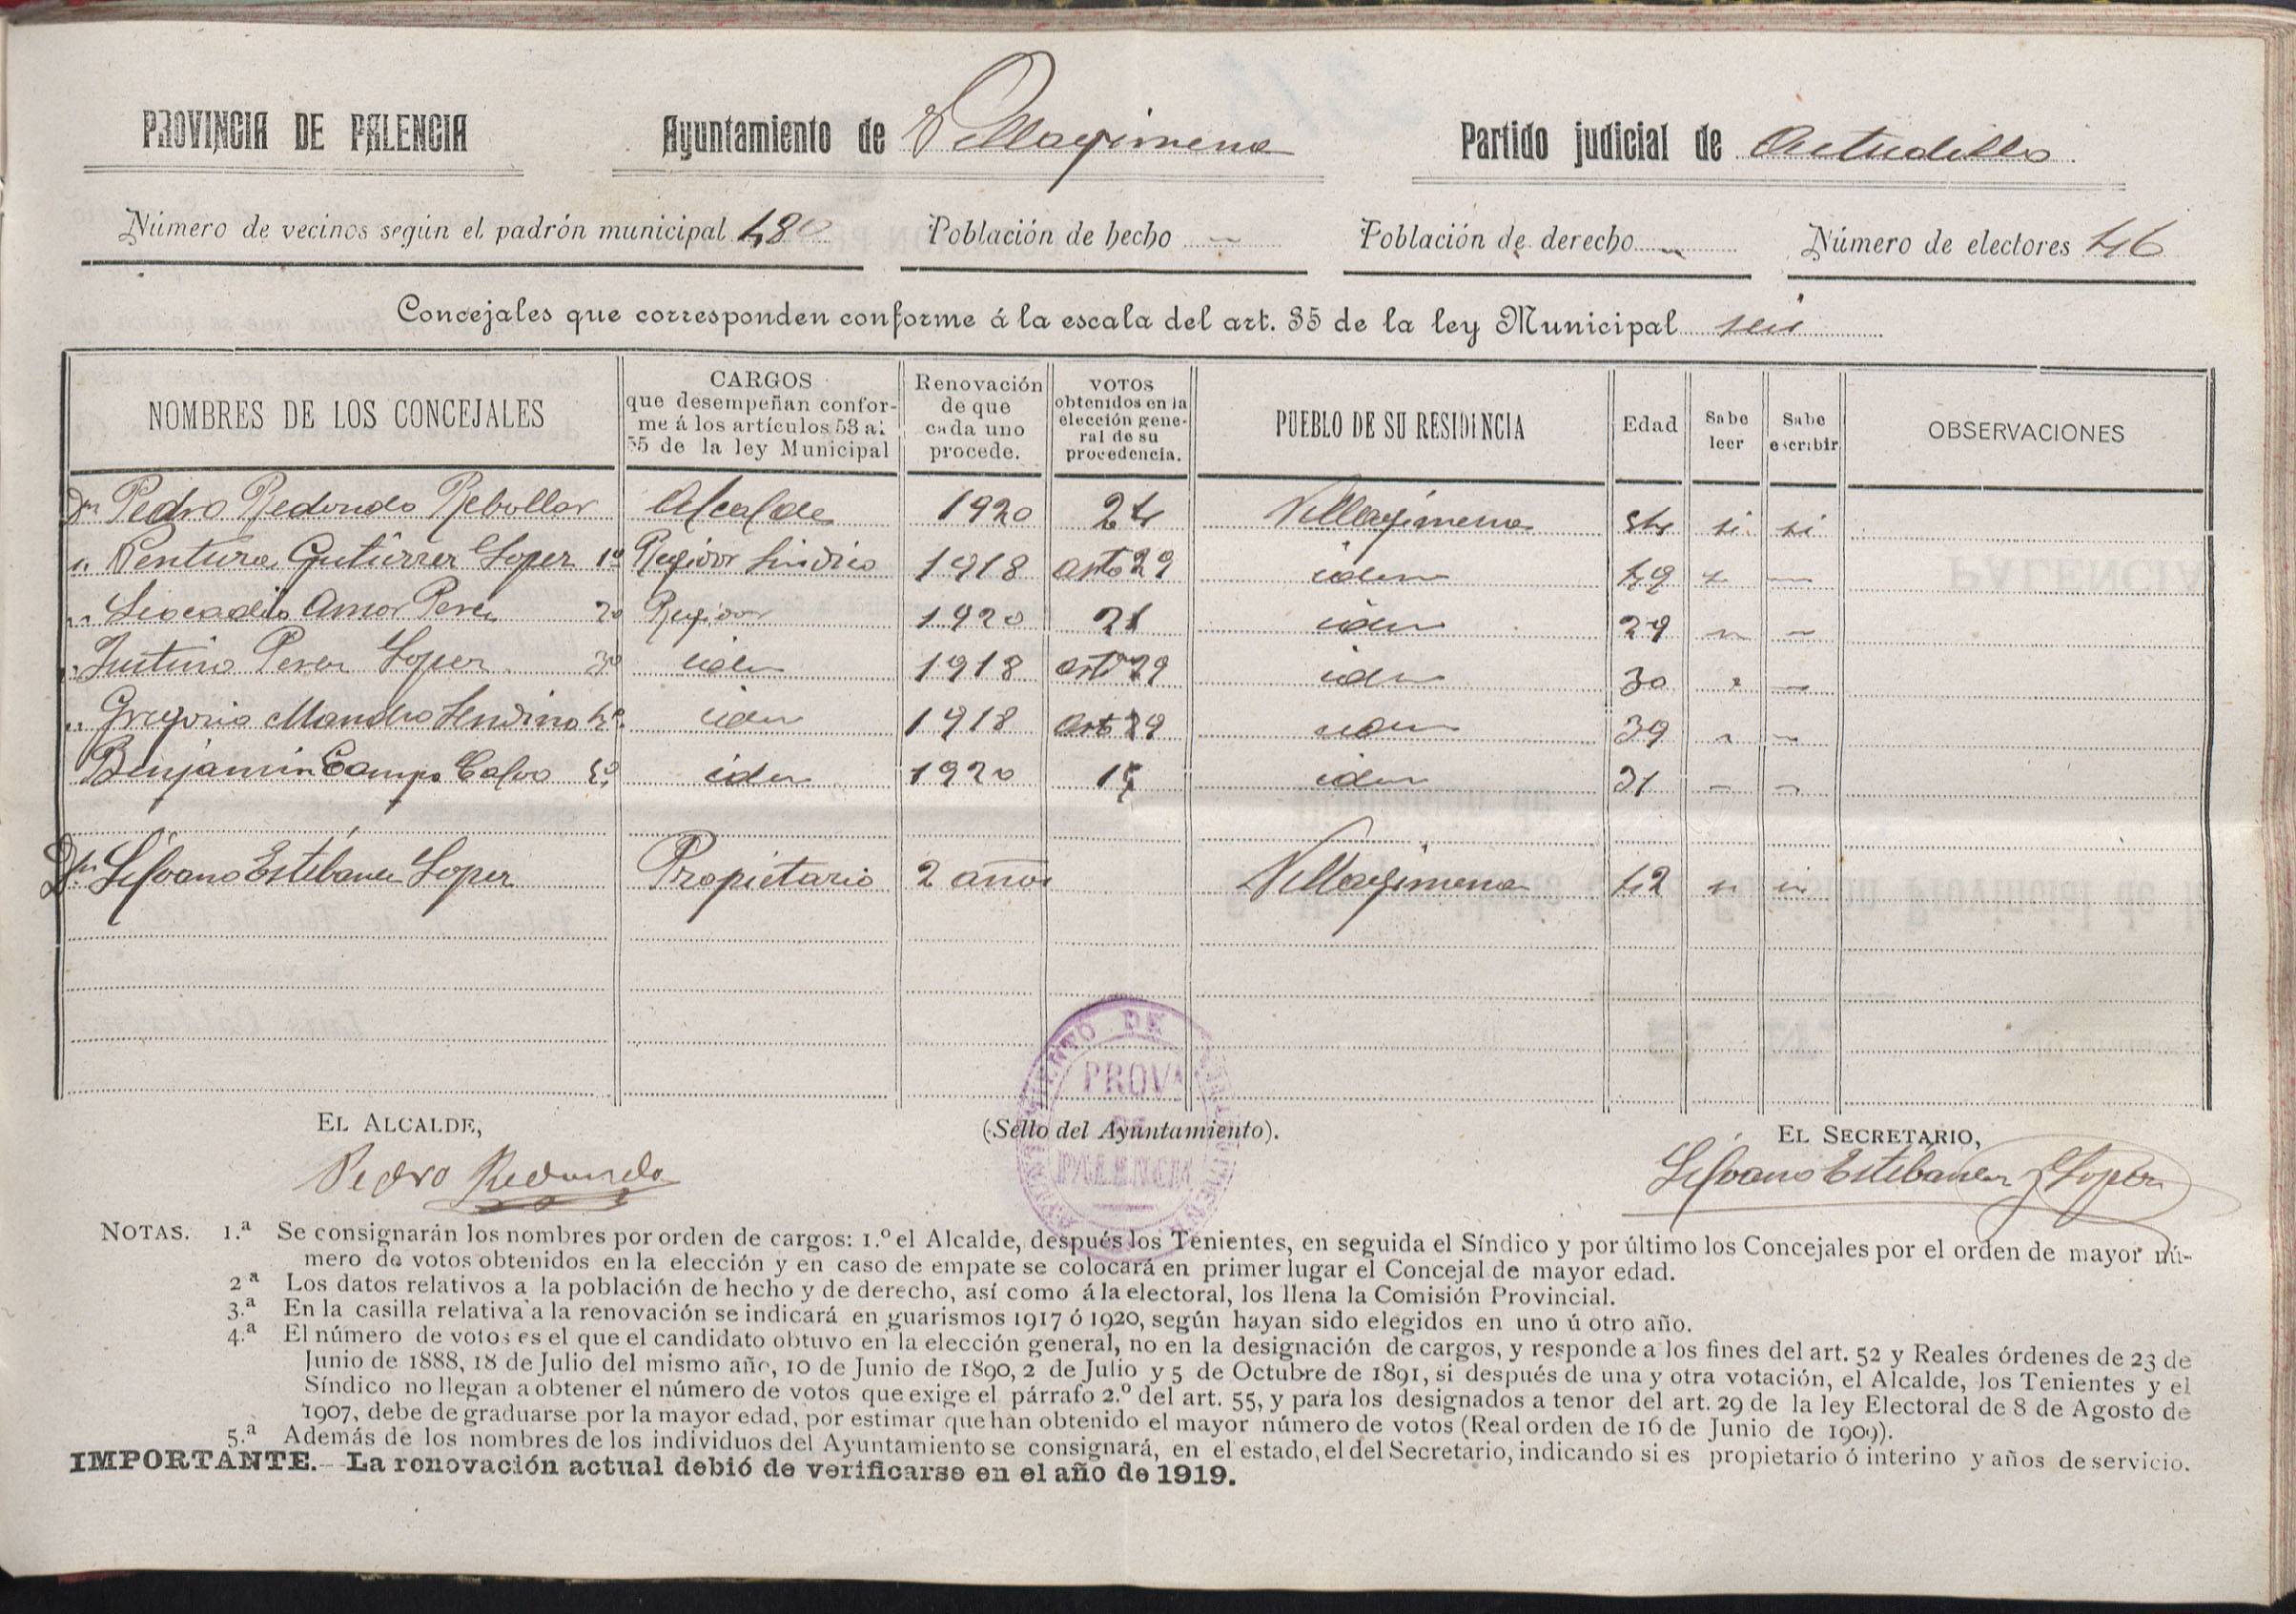 PROVINCIA DE PALENCIA Ayuntamiento de Villagimena Partido judicial de Astudillo
Número de vecinos según el padrón municipal 480 Población de hecho — Población de derecho — Número de electores 46
Concejales que corresponden conforme á la escala del art. 35 de la ley Municipal seis
NOMBRES DE LOS CONCEJALES CARGOS que desempeñan confor- me á los artículos 53 a: 55 de la ley Municipal Renovación de que cada uno procede. VOTOS obtenidos en la elección gene- ral de su procedencia. PUEBLO DE SU RESIDENCIA Edad Sabe leer Sabe escribir OBSERVACIONES
Dn Pedro Redondo Rebollar Alcalde 1920 24 Villagimena 54 si si
" Ventura Gutierrez Lopez 1º Regidor Sindico 1918 arto 29 idem 49 " "
" Leocadio Amor Perez 2º Regidor 1920 21 idem 29 " "
" Justino Perez Lopez 3º idem 1918 arto 29 idem 30 " "
" Gregorio Mancho Sendino 4º idem 1918 arto 29 idem 39 " "
Benjamin Campo Calvo 5º idem 1920 15 idem 31 " "
Dn Silvano Estebanez Lopez Propietario 2 años Villagimena 42 " "
AYUNTAMIENTO DE VILLAGIMENA
PROVª
DE
PALENCIA
EL ALCALDE, (Sello del Ayuntamiento). EL SECRETARIO,
Pedro Redondo Silvano Estebanez y Lopez
NOTAS. 1.ª Se consignarán los nombres por orden de cargos: 1.º el Alcalde, después los Tenientes, en seguida el Síndico y por último los Concejales por el orden de mayor nú-
mero de votos obtenidos en la elección y en caso de empate se colocará en primer lugar el Concejal de mayor edad.
2ª Los datos relativos a la población de hecho y de derecho, así como á la electoral, los llena la Comisión Provincial.
3.ª En la casilla relativa a la renovación se indicará en guarismos 1917 ó 1920, según hayan sido elegidos en uno ú otro año.
4.ª El número de votos es el que el candidato obtuvo en la elección general, no en la designación de cargos, y responde a los fines del art. 52 y Reales órdenes de 23 de
Junio de 1888, 18 de Julio del mismo año, 10 de Junio de 1890, 2 de Julio y 5 de Octubre de 1891, si después de una y otra votación, el Alcalde, los Tenientes y el
Síndico no llegan a obtener el número de votos que exige el párrafo 2.º del art. 55, y para los designados a tenor del art. 29 de la ley Electoral de 8 de Agosto de
1907, debe de graduarse por la mayor edad, por estimar que han obtenido el mayor número de votos (Real orden de 16 de Junio de 1909).
5.ª Además de los nombres de los individuos del Ayuntamiento se consignará, en el estado, el del Secretario, indicando si es propietario ó interino y años de servicio.
IMPORTANTE.— La renovación actual debió de verificarse en el año de 1919.